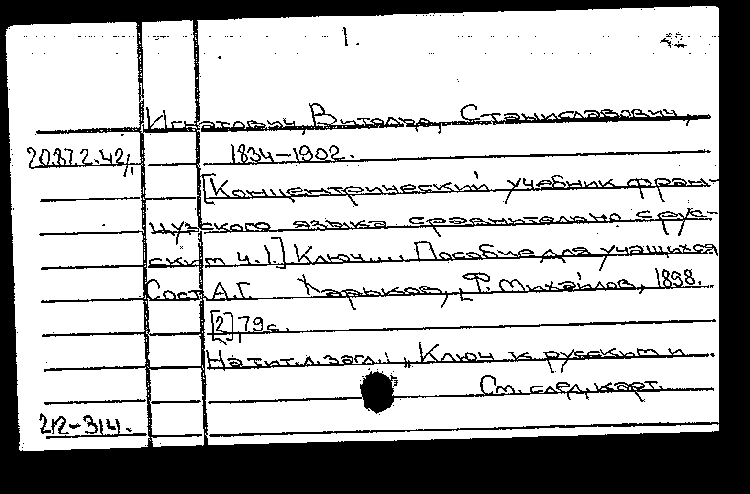 1.
42
Игнатович, Витольд, Станиславович,
20.87.2.42/1.
1834-1902.
[Концентрический учебник фран-
цузского языка сравнительно с рус-
ским ч. 1.] Ключ.... Пособие для учащихся
Сост. А.Г. Харьков, Ф. Михайлов, 1898.
[2], 79с.
На тит. л. загл.: „Ключ к русским и
См. след. карт.
212-314.